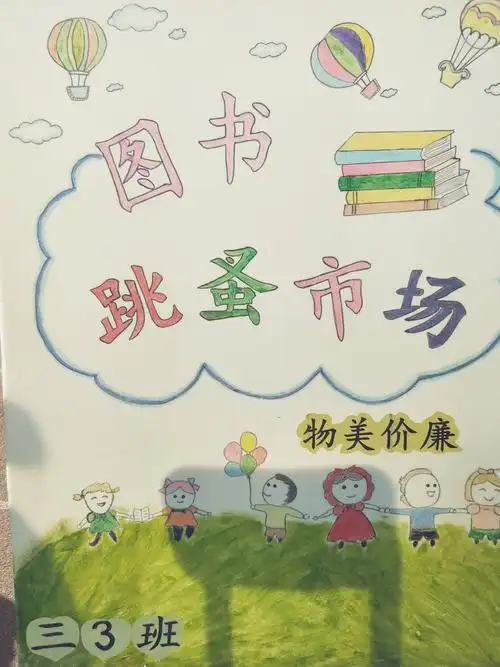 图书
跳蚤市场
物美价廉
三3班